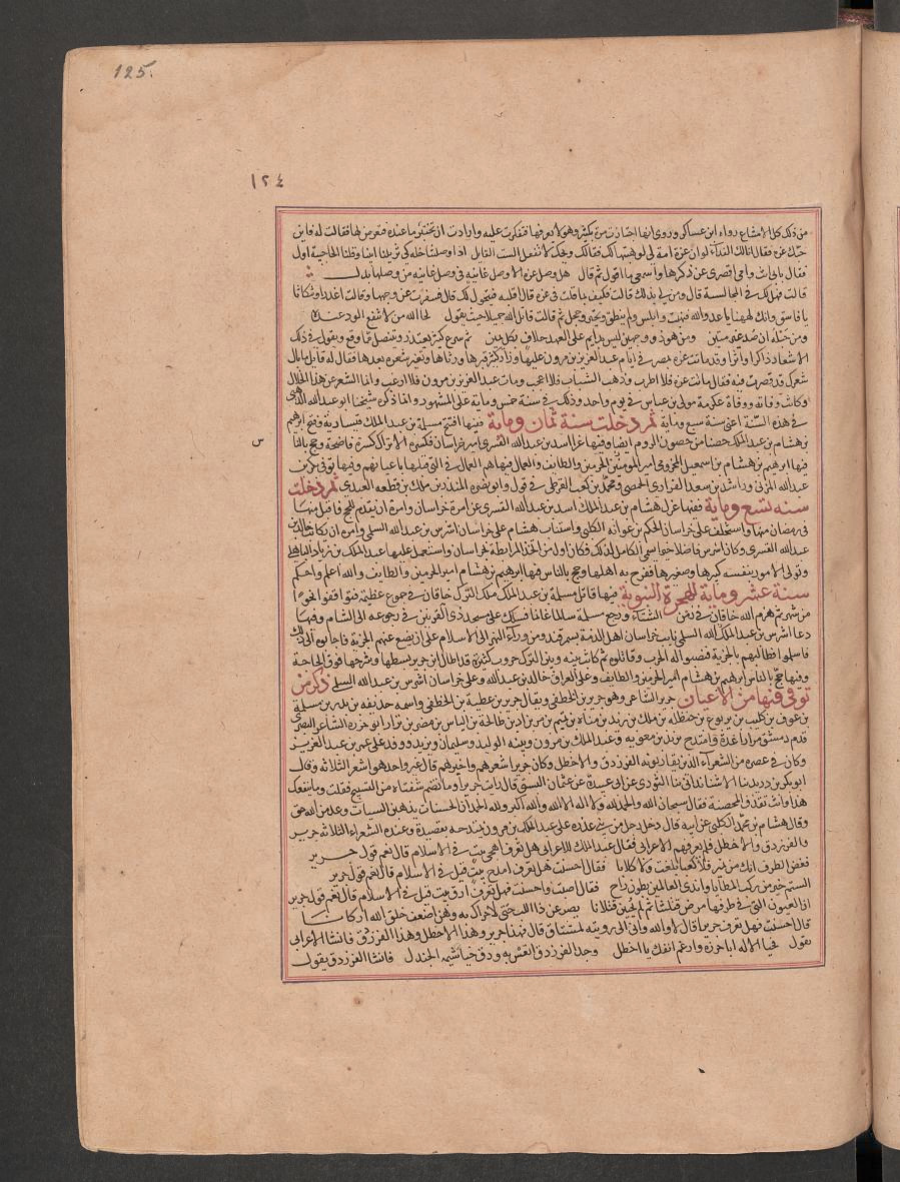 125.
١٢٤
من ذلك كل الامتناع رواه ابن عساكر وروى انها اجتازت مرة بكثير وهو لا يعرفها فتنكرت عليه وارادت ان تختبر ما عنده فتعرض لها فقالت له فاين
حبك عزة فقال انالك الفداء لو ان عزة امة لى لوهبتها لك فقالت ويحك لا تفعل الست القائل اذا وصلتنا خلة كى تزيلنا ابينا وقلنا الحاجبية اول
فقال بابى انت وامى اقصرى عن ذكرها واسمعى ما اقول ثم قال هل وصل عزة الا وصل غانية فى وصل غانية من وصلها بدل
قالت فهل لك فى المجالسة قال ومن لى بذلك قالت فكيف بما قلت فى عزة قال اقلبه فيتحول لك قال فسفرت عن وجهها وقالت اغدرا وتنكاثا
يا فاسق وانك لههنا يا عدو الله فبهت وابلس ولم ينطق وتحير وخجل ثم قالت قاتل الله جميلا حيث يقول لحا الله من لا ينفع الود عنده
ومن حبله ان صد غير متين ومن هو ذو وجهين ليس بدايم على العهد حلاف بكل يمين ثم شرع كثير يعتذر ويتنصل مما وقع ويقول فى ذلك
الاشعار ذاكرا واثرا وقد ماتت عزة بمصر فى ايام عبد العزيز بن مرون عليها وزار كثير قبرها ورثاها وتغير شعره بعدها فقال له قايل ما بال
شعرك قد قصرت فيه فقال ماتت عزة فلا اطرب وذهب الشباب فلا اعجب ومات عبد العزيز بن مرون فلا ارغب وانما الشعر عن هذا الخلال
وكانت وفاته ووفاة عكرمة مولى بن عباس فى يوم واحد وذلك فى سنة خمس وماية على المشهور وانما ذكره شيخنا ابو عبد الله الذهبى
فى هذه السنة اعنى سنة سبع وماية ثم دخلت سنة ثمان وماية ففيها افتتح مسلمة بن عبد الملك قيسارية وفتح ابرهيم
بن هشام بن عبد الملك حصنا من حصون الروم ايضا وفيها غزا اسد بن عبد الله القسرى امير خراسان فكسر الاتراك كسرة فاضحة وحج بالناس
فيها ابرهيم بن هشام بن اسمعيل المخزومى امير الحرمين والطايف والعمال فيها هم العمال فى التى قبلها باعيانهم وفيها توفى بكر بن
عبد الله المزنى وراشد بن سعد المقراى الحمصى ومحمد بن كعب القرظى فى قول وابو نضره المنذر بن ملك بن قطعه العبدى ثم دخلت
سنه تسع وماية ففيها عزل هشام بن عبد الملك اسد بن عبد الله القسرى عن امرة خراسان وامره ان يقدم للحج فاقبل منها
فى رمضان منها واستخلف على خراسان الحكم بن عوانه الكلبى واستناب هشام على خراسان اشرس بن عبد الله السلمى وامره ان يكاتب خالد بن
عبد الله القسرى وكان اشرس فاضلا خيرا سمى الكامل لذلك فكان اول من اتخذ المرابطة بخراسان واستعمل عليها عبد الملك بن زياد الباهلى
وتولى الامور بنفسه كبيرها وصغيرها ففرح به اهلها وحج بالناس فيها ابرهيم بن هشام امير الحرمين والطايف والله اعلم واحكم
سنة عشر وماية للهجرة النبوية فيها قاتل مسلمة بن عبد الملك ملك الترك خاقان فى جموع عظيمة فتواقفوا نحوا
من شهر ثم هزم الله خاقان فى زمن الشتاء ورجع مسلمة سالما غانما فسلك على مسجد ذى القرنين فى رجوعه الى الشام وفيها
دعا اشرس بن عبد الله السلمى نايب خراسان اهل الذمة بسمرقند ومن وراء النهر الى الاسلام على ان يضع عنهم الجزية فاجابوه الى ذلك
فاسلموا فطالبهم بالجزية فنصبوا له الحرب وقاتلوه ثم كانت بينه وبين الترك حروب كثيرة قد اطال ابن جرير بسطها وشرحها فوق الحاجة
وفيها حج بالناس ابرهيم بن هشام امير الحرمين والطايف وعلى العراق خالد بن عبد الله وعلى خراسان اشرس بن عبد الله السلمى ذكر من
توفى فيها من الاعيان جرير الشاعر وهو جرير بن الخطفى ويقال جرير بن عطية بن الخطفى واسمه حذيفه بن بدر بن سلمة
بن عوف بن كليب بن يربوع بن حنظله بن ملك بن زيد بن مناه بن تميم بن مر بن اد بن طابخة بن الياس بن مضر بن نزار ابو حزرة الشاعر البصرى
قدم دمشق مرارا عدة وامتدح يزيد بن معويه وعبد الملك بن مرون وبنيه الوليد وسليمان ويزيد ووفد على عمر بن عبد العزيز
وكان فى عصره من الشعراء الذين يقارنونه الفرزدق والاخطل وكان جرير اشعرهم واخيرهم قال غير واحد هو اشعر الثلاثه وقال
ابو بكر بن دريد ثنا الاشناندانى ثنا التوزى عن ابى عبيدة عن عثمان البستى قال رايت جريرا وما تضم شفتاه من التسبيح فقلت وما ينفعك
هذا وانت تقذف المحصنة فقال سبحان الله والحمد لله ولا اله الا الله والله اكبر ولله الحمد ان الحسنات يذهبن السيات وعد من الله حق
وقال هشام بن محمد الكلبى عن ابيه قال دخل رجل من بنى عذره على عبد الملك بن مرون يمتدحه بقصيدة وعنده الشعراء الثلاثه جرير
والفرزدق والاخطل فلم يعرفهم الاعرابى فقال عبد الملك للاعرابى هل تعرف اهجى بيت فى الاسلام قال نعم قول جرير
فغض الطرف انك من نمير فلا كعبا بلغت ولا كلابا فقال احسنت هل تعرف امدح بيت قيل فى الاسلام قال نعم قول جرير
الستم خير من ركب المطايا واندى العالمين بطون راح فقال اصبت واحسنت فهل تعرف ارق بيت قيل فى الاسلام قال نعم قول جرير
ان العيون التى فى طرفها مرض قتلننا ثم لم يحيين قتلانا يصرعن ذا اللب حتى لا حراك به وهن اضعف خلق الله اركانا
قال احسنت فهل تعرف جريرا قال لا والله وانى الى رويته لمشتاق قال فهذا جرير وهذا الاخطل وهذا الفرزدق فانشا الاعرابى
يقول فحيا الاله ابا حزره وارغم انفك يا اخطل وجد الفرزدق اتعس به ودق خياشيمه الجندل فانشا الفرزدق يقول